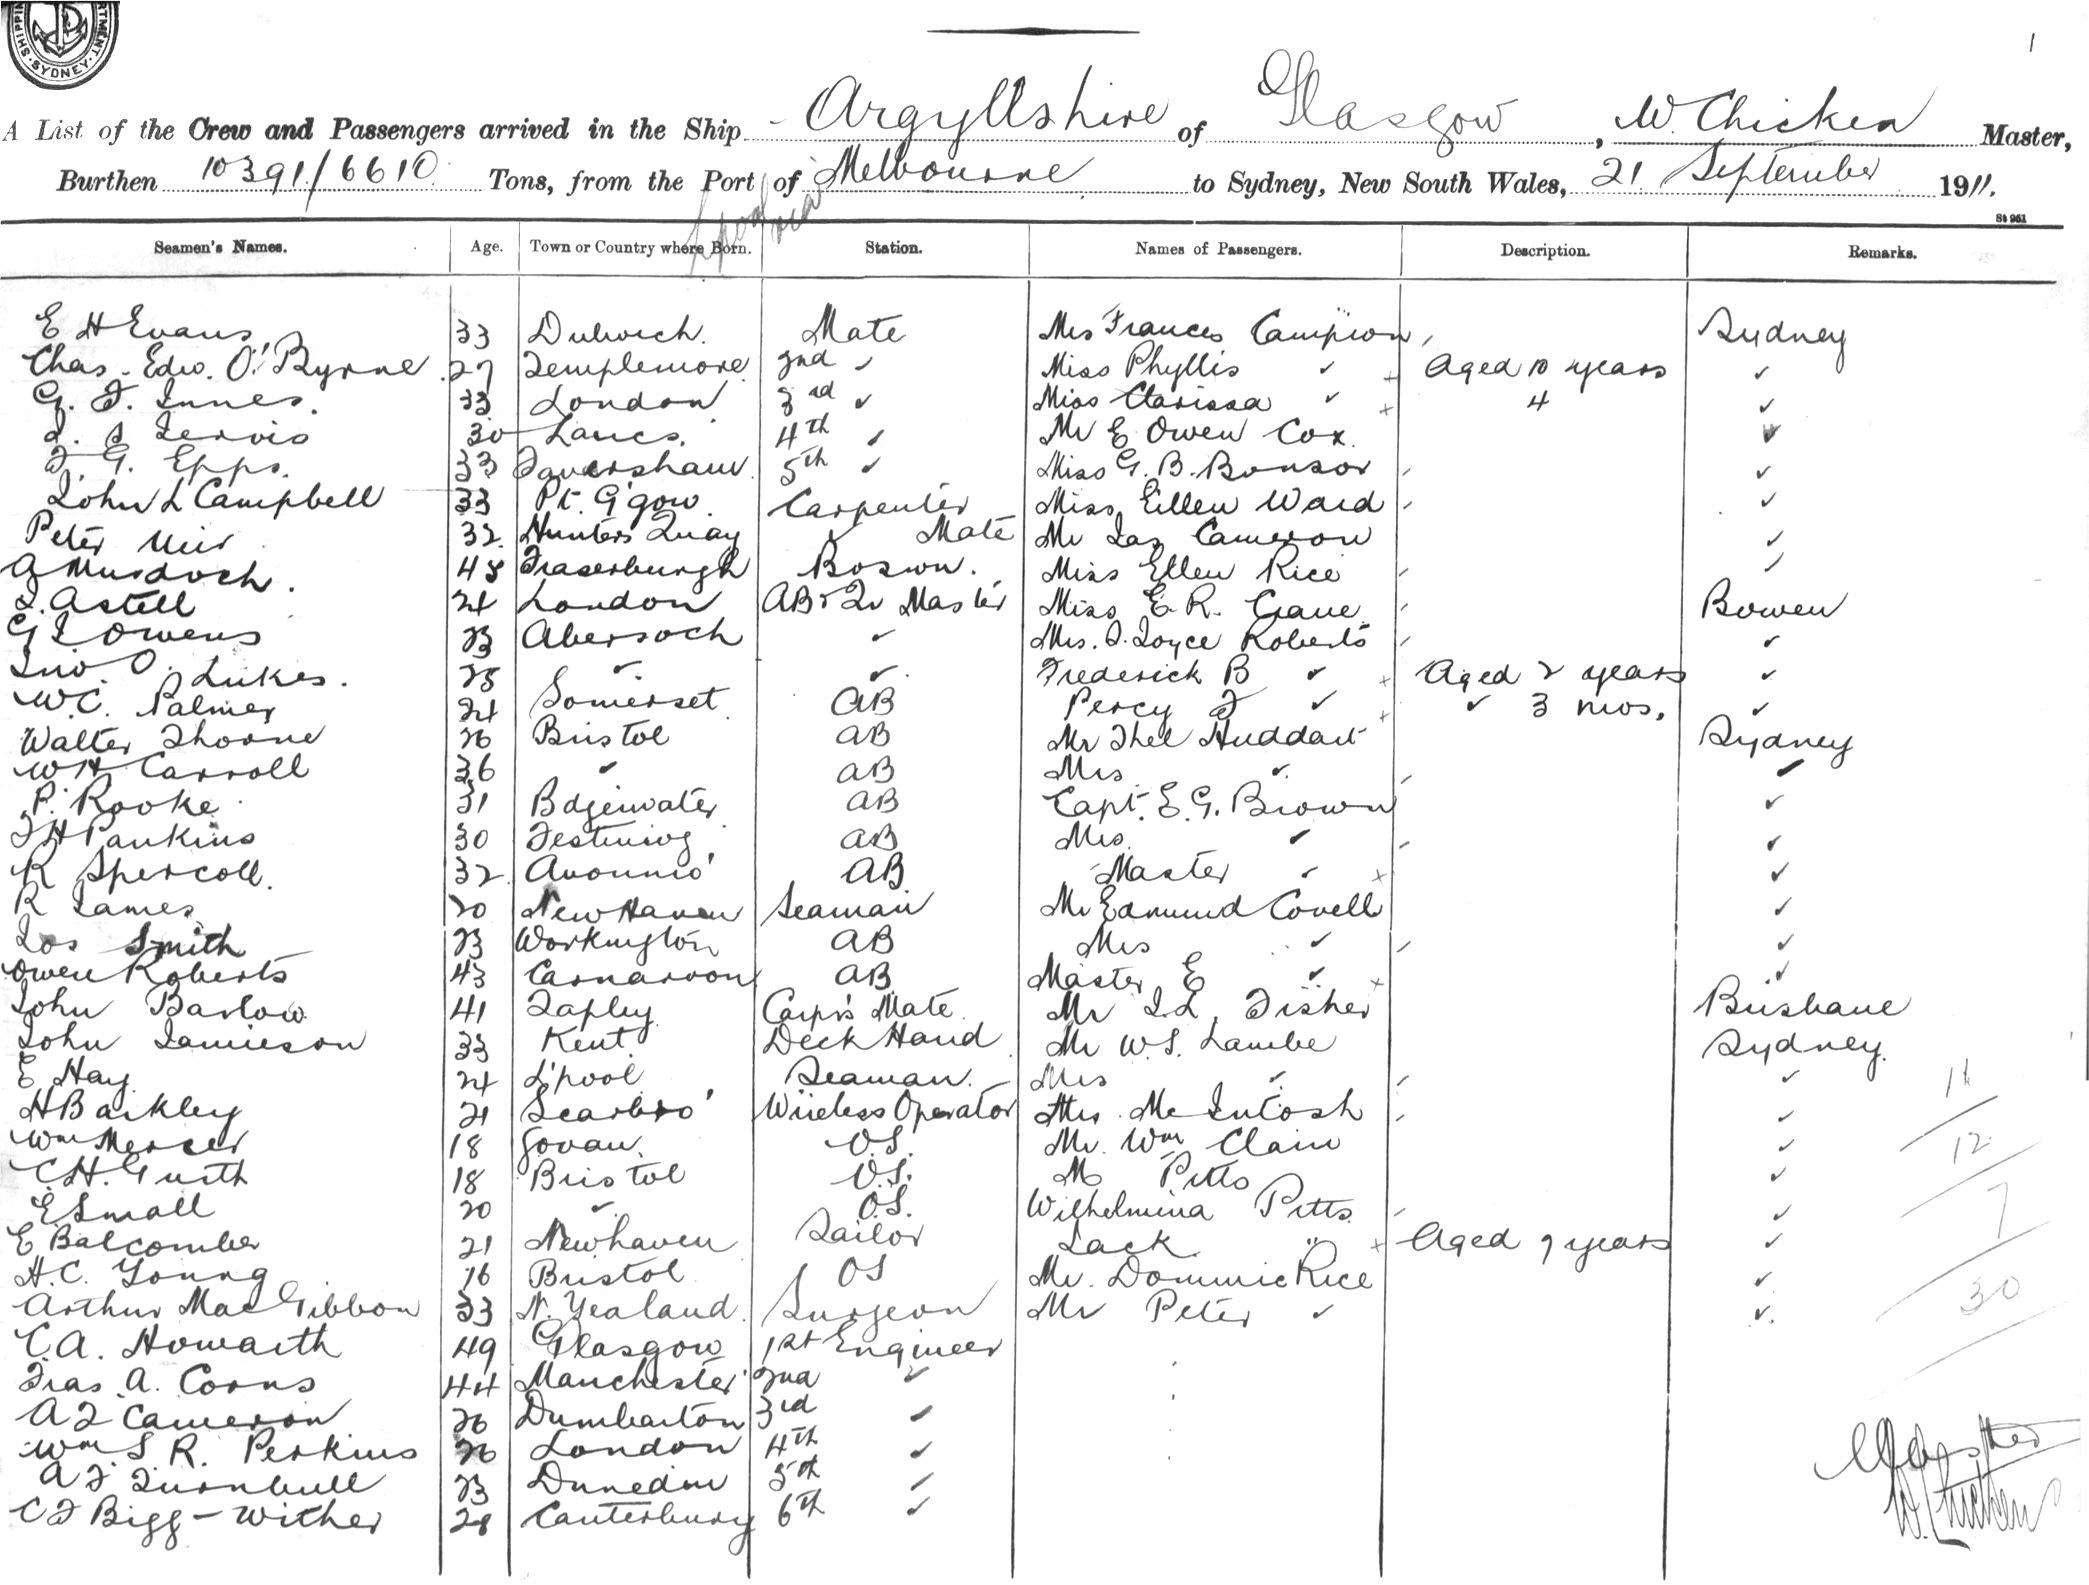 SHIPPING DEPARTMENT. SYDNEY.
1
A List of the Crew and Passengers arrived in the Ship Argyllshire of Glasgow, W. Chicken Master,
Burthen 10391/6610 Tons, from the Port of Melbourne to Sydney, New South Wales, 21 September 1911.
St 961
Seamen's Names. Age. Town or Country where Born. Station. Names of Passengers. Description. Remarks.
E H Evans 33 Dulwich. Mate Mrs Frances Campion Sydney
Chas. Edw. O'Byrne 27 Templemore 2nd ✓ Miss Phyllis ✓ x Aged 10 years ✓
G. F. Innes. 33 London 3rd ✓ Miss Clarissa ✓ x 4 ✓
J. S Jervis 30 Lancs. 4th ✓ Mr E Owen Cox. ✓
F. G. Epps. 33 Faversham 5th ✓ Miss G. B. Bonsor ✓
John L Campbell 33 Pt. G'gow. Carpenter Miss Eillen Ward ✓
Peter Muir 32 Hunters Quay ✓ Mate Mr Jas Cameron ✓
A Murdoch. 48 Fraserburgh Boswn. Miss Ellen Rice ✓
J. Astell 24 London AB & Qr Master Miss E. R. Crane Bowen
G J Owens 23 Abersoch ✓ Mrs. J. Joyce Roberts ✓
Jno. O. Lukes. 25 ✓ ✓ Frederick B ✓ x Aged 2 years ✓
W. C. Palmer 24 Somerset AB Percy J ✓ x ✓ 3 mos. ✓
Walter Thorne 26 Bristol AB Mr Thel Huddart Sydney
W H Carroll 36 ✓ AB Mrs ✓ ✓
P. Rooke 31 Bdgewater AB Capt. E. G. Brown ✓
J H Pankins 30 Festiniog AB Mrs. ✓ ✓
R Spercoll. 32 AB Master ✓ x ✓
R James 20 New Haven Seaman Mr Edmund Covell ✓
Jos Smith 23 Workington AB Mrs ✓ ✓
Owen Roberts 43 Carnarvon AB Master E ✓ x ✓
John Barlow 41 Tapley Carpr's Mate Mr J. L. Fisher Brisbane
John Jamieson 33 Kent Deck Hand Mr W. S. Lambe Sydney.
E Hay 24 L'pool Seaman. Mrs ✓ ✓
H Barkley 21 Scarbro' Wireless Operator Mrs. McIntosh ✓
Wm Mercer 18 Govan. O.S. Mr. Wm Clain ✓
C. H. Gurth 18 Bristol O.S. M Pitts ✓
E Small 20 ✓ O.S. Wilhelmina Pitts ✓
E Balcomber 21 Newhaven Sailor Jack " x Aged 7 years ✓
H. C. Young 16 Bristol OS Mr. Dominic Rice ✓
Arthur MacGibbon 33 N. Zealand Surgeon Mr Peter ✓ ✓
C. A. Howarth 49 Glasgow 1st Engineer
Fras. A. Corns 44 Manchester 2nd ✓
A J Cameron 26 Dumbarton 3rd ✓
Wm S. R. Perkins 26 London 4th ✓
A F Turnbull 23 Dunedin 5th ✓
C F Bigg-Wither 28 Canterbury 6th ✓
11
12
7
30
W. Chicken